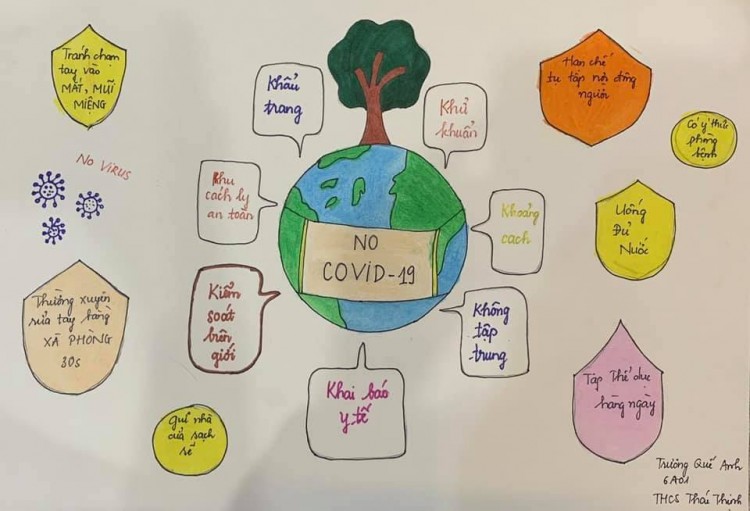 Tránh chạm
tay vào
MẮT, MŨI
MIỆNG
Khẩu
trang
Khử
khuẩn
Hạn chế
tụ tập nơi đông
người
Có ý thức
phòng
bệnh
NO VIRUS
Khu
cách ly
an toàn
NO
COVID-19
Khoảng
cách
Uống
Đủ
Nước
Thường xuyên
rửa tay bằng
XÀ PHÒNG
30s
Kiểm
soát
biên
giới
Không
tập
trung
Khai báo
y tế
Tập Thể dục
hàng ngày
Giữ nhà
cửa sạch
sẽ
Trương Quế Anh
6A01
THCS Thái Thịnh